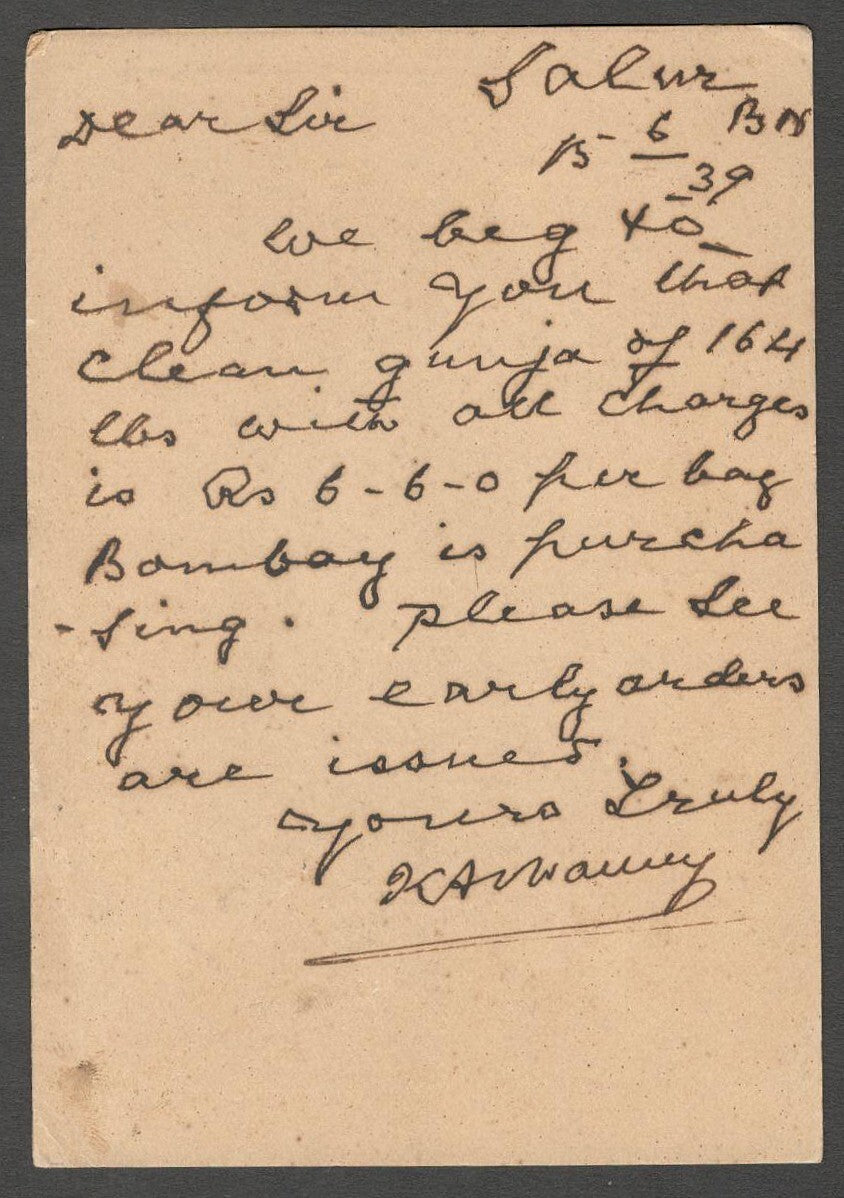 Salur
Dear Sir
B N
15-6-39
We beg to
inform you that
clean gunja of 164
lbs with all charges
is Rs 6-6-0 per bag
Bombay is purcha
-sing. please see
your early orders
are issued.
yours truly